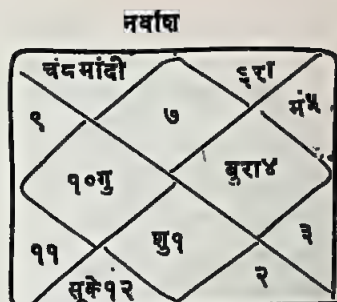 नवांश
चं८मांदी
६रा
मं५
९
७
१०गु
बुरा४
११
शु१
३
सूके१२
२